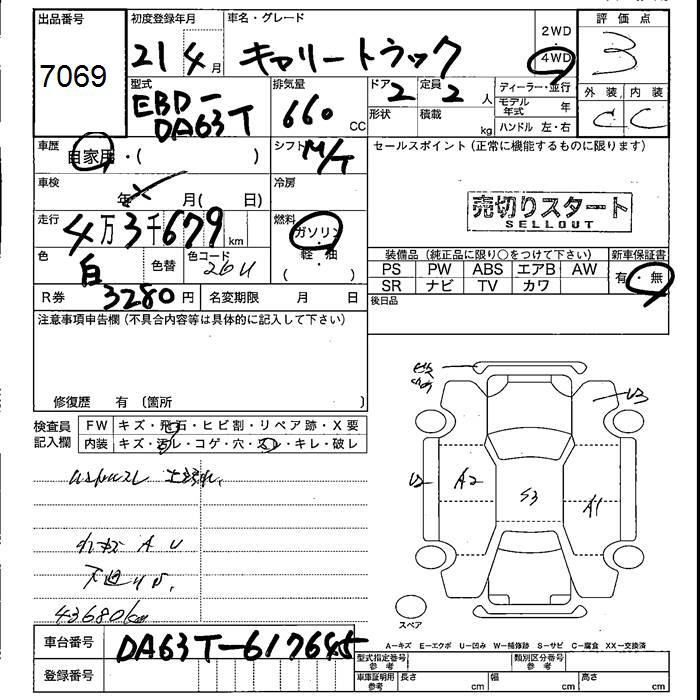 出品番号 初度登録年月 車名・グレード 2WD 評価点
7069 21 4月 キャリートラック 4WD 3
型式 排気量 ドア 定員 ディーラー・並行 外装 内装
EBD-DA63T 660 CC 2 2人 モデル年式 年 C C
形状 積載 kg ハンドル 左・右
車歴 自家用・( ) シフト M/T セールスポイント (正常に機能するものに限ります)
車検 年 月( 日) 冷房
売切りスタート
SELLOUT
走行 4万3千679km 燃料 ガソリン
軽・油
( )
色 白 色替 色コード 26U
装備品 (純正品に限り○をつけて下さい) 新車保証書
PS PW ABS エアB AW 有・無
SR ナビ TV カワ
R券 3280円 名変期限 月 日 後日品
注意事項申告欄 (不具合内容等は具体的に記入して下さい)
修復歴 有 (箇所 )
検査員記入欄 FW キズ・飛石・ヒビ割・リペア跡・X要
内装 キズ・汚レ・コゲ・穴・スレ・キレ・破レ
U3
U2 A2 S3 A1
キズ A U
43680km
スペア
A=キズ E=エクボ U=凹み W=補修跡 S=サビ C=腐食 XX=交換済
車台番号 DA63T-617645
型式指定番号 参考 類別区分番号 参考
登録番号 車庫証明用 参考 長さ cm 幅 cm 高さ cm